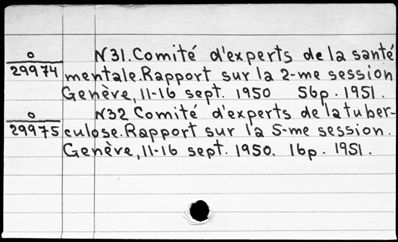 O N31. Comité d'experts de la santé
29974 mentale. Rapport sur la 2-me session
Genève, 11-16 sept. 1950 56p. 1951.
O N32 Comité d'experts de la tuber-
29975 culose. Rapport sur la 5-me session.
Genève, 11-16 sept. 1950. 16p. 1951.